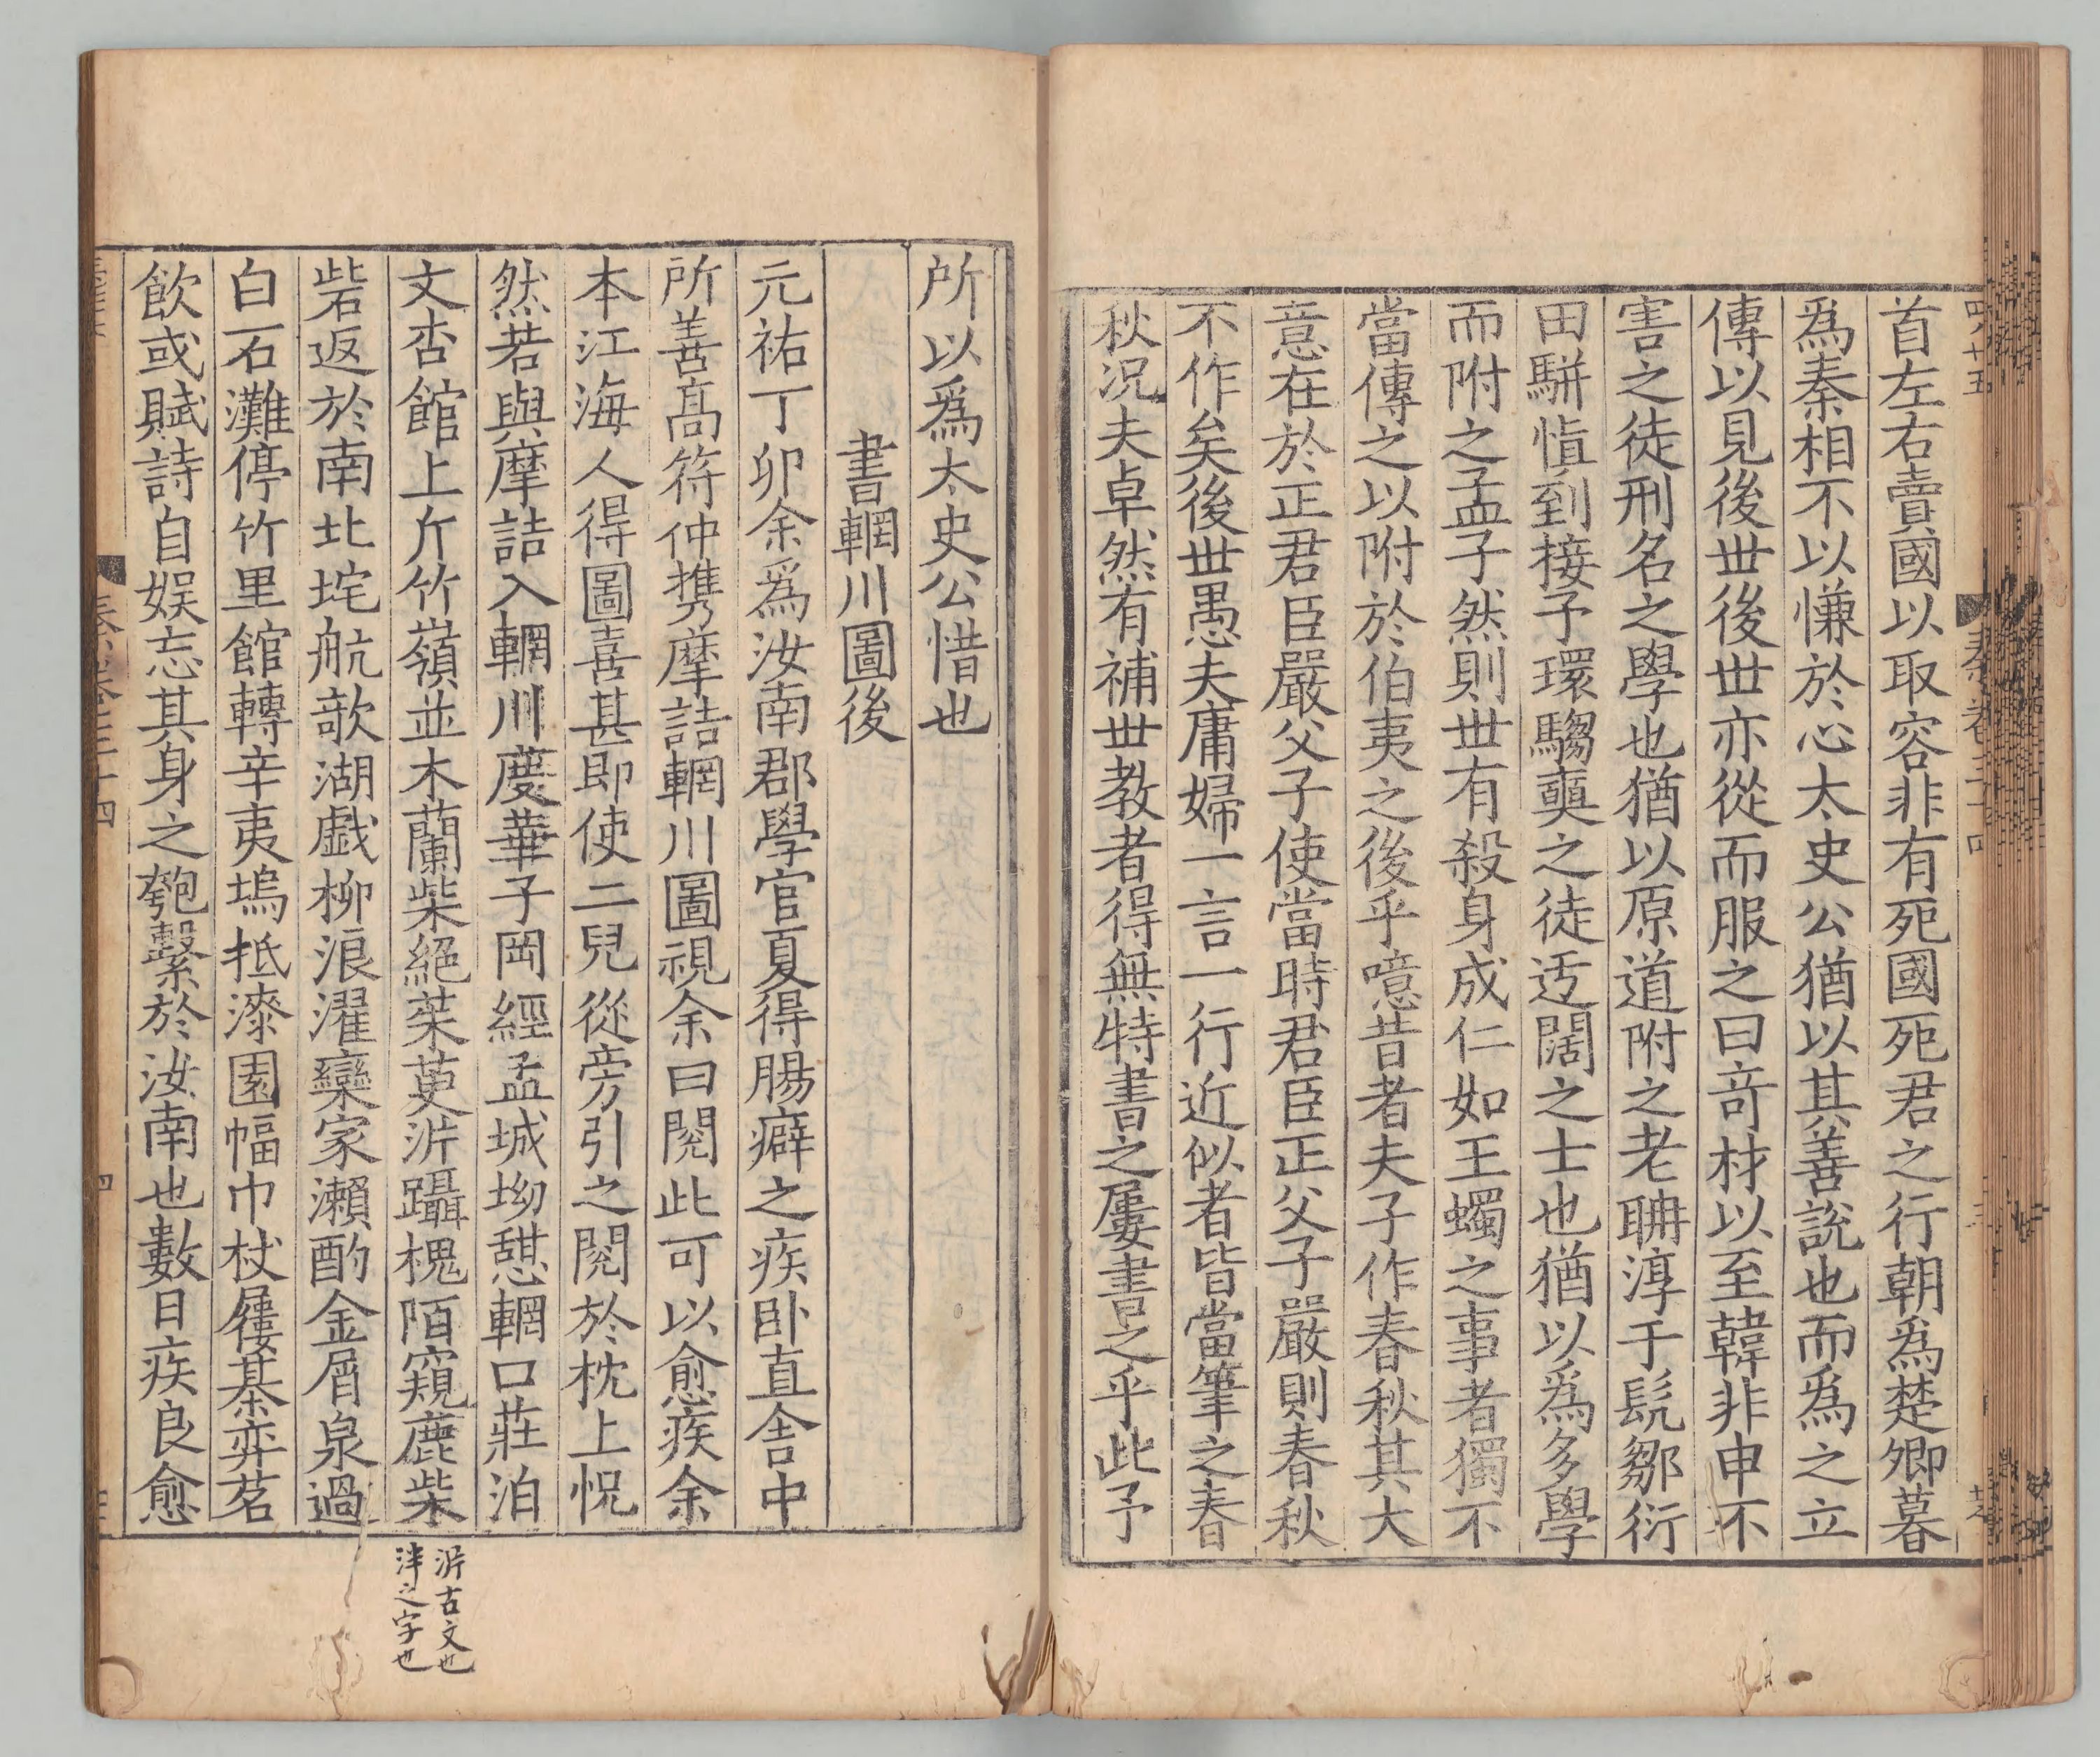 首左右賣國以取容非有死國死君之行朝爲楚卿暮
爲秦相不以慊於心太史公猶以其善說也而爲之立
傳以見後世後世亦從而服之曰竒材以至韓非申不
害之徒刑名之學也猶以原道附之老聃淳于髡鄒衍
田駢愼到接予環騶奭之徒迃闊之士也猶以爲多學
而附之孟子然則世有殺身成仁如王蠋之事者獨不
當傳之以附於伯夷之後乎噫昔者夫子作春秋其大
意在於正君臣嚴父子使當時君臣正父子嚴則春秋
不作矣後世愚夫庸婦一言一行近似者皆當筆之春
秋況夫卓然有補世教者得無特書之屢書之乎此予
所以爲太史公惜也
書輞川圖後
元祐丁卯余爲汝南郡學官夏得腸癖之疾卧直舍中
所善髙符仲攜摩詰輞川圖視余曰閱此可以愈疾余
本江海人得圖喜甚即使二兒從旁引之閱於枕上怳
然若與摩詰入輞川度華子岡經孟城坳憇輞口莊泊
文杏館上斤竹嶺並木蘭柴絕茱萸沜躡槐陌窺鹿柴
砦返於南北垞航欹湖戲柳浪濯欒家瀨酌金屑泉過
白石灘停竹里館轉辛夷塢抵漆園幅巾杖屨棊弈茗
飲或賦詩自娱忘其身之匏繫於汝南也數日疾良愈
沜古文也
泮之字也
秦卷三十四
四